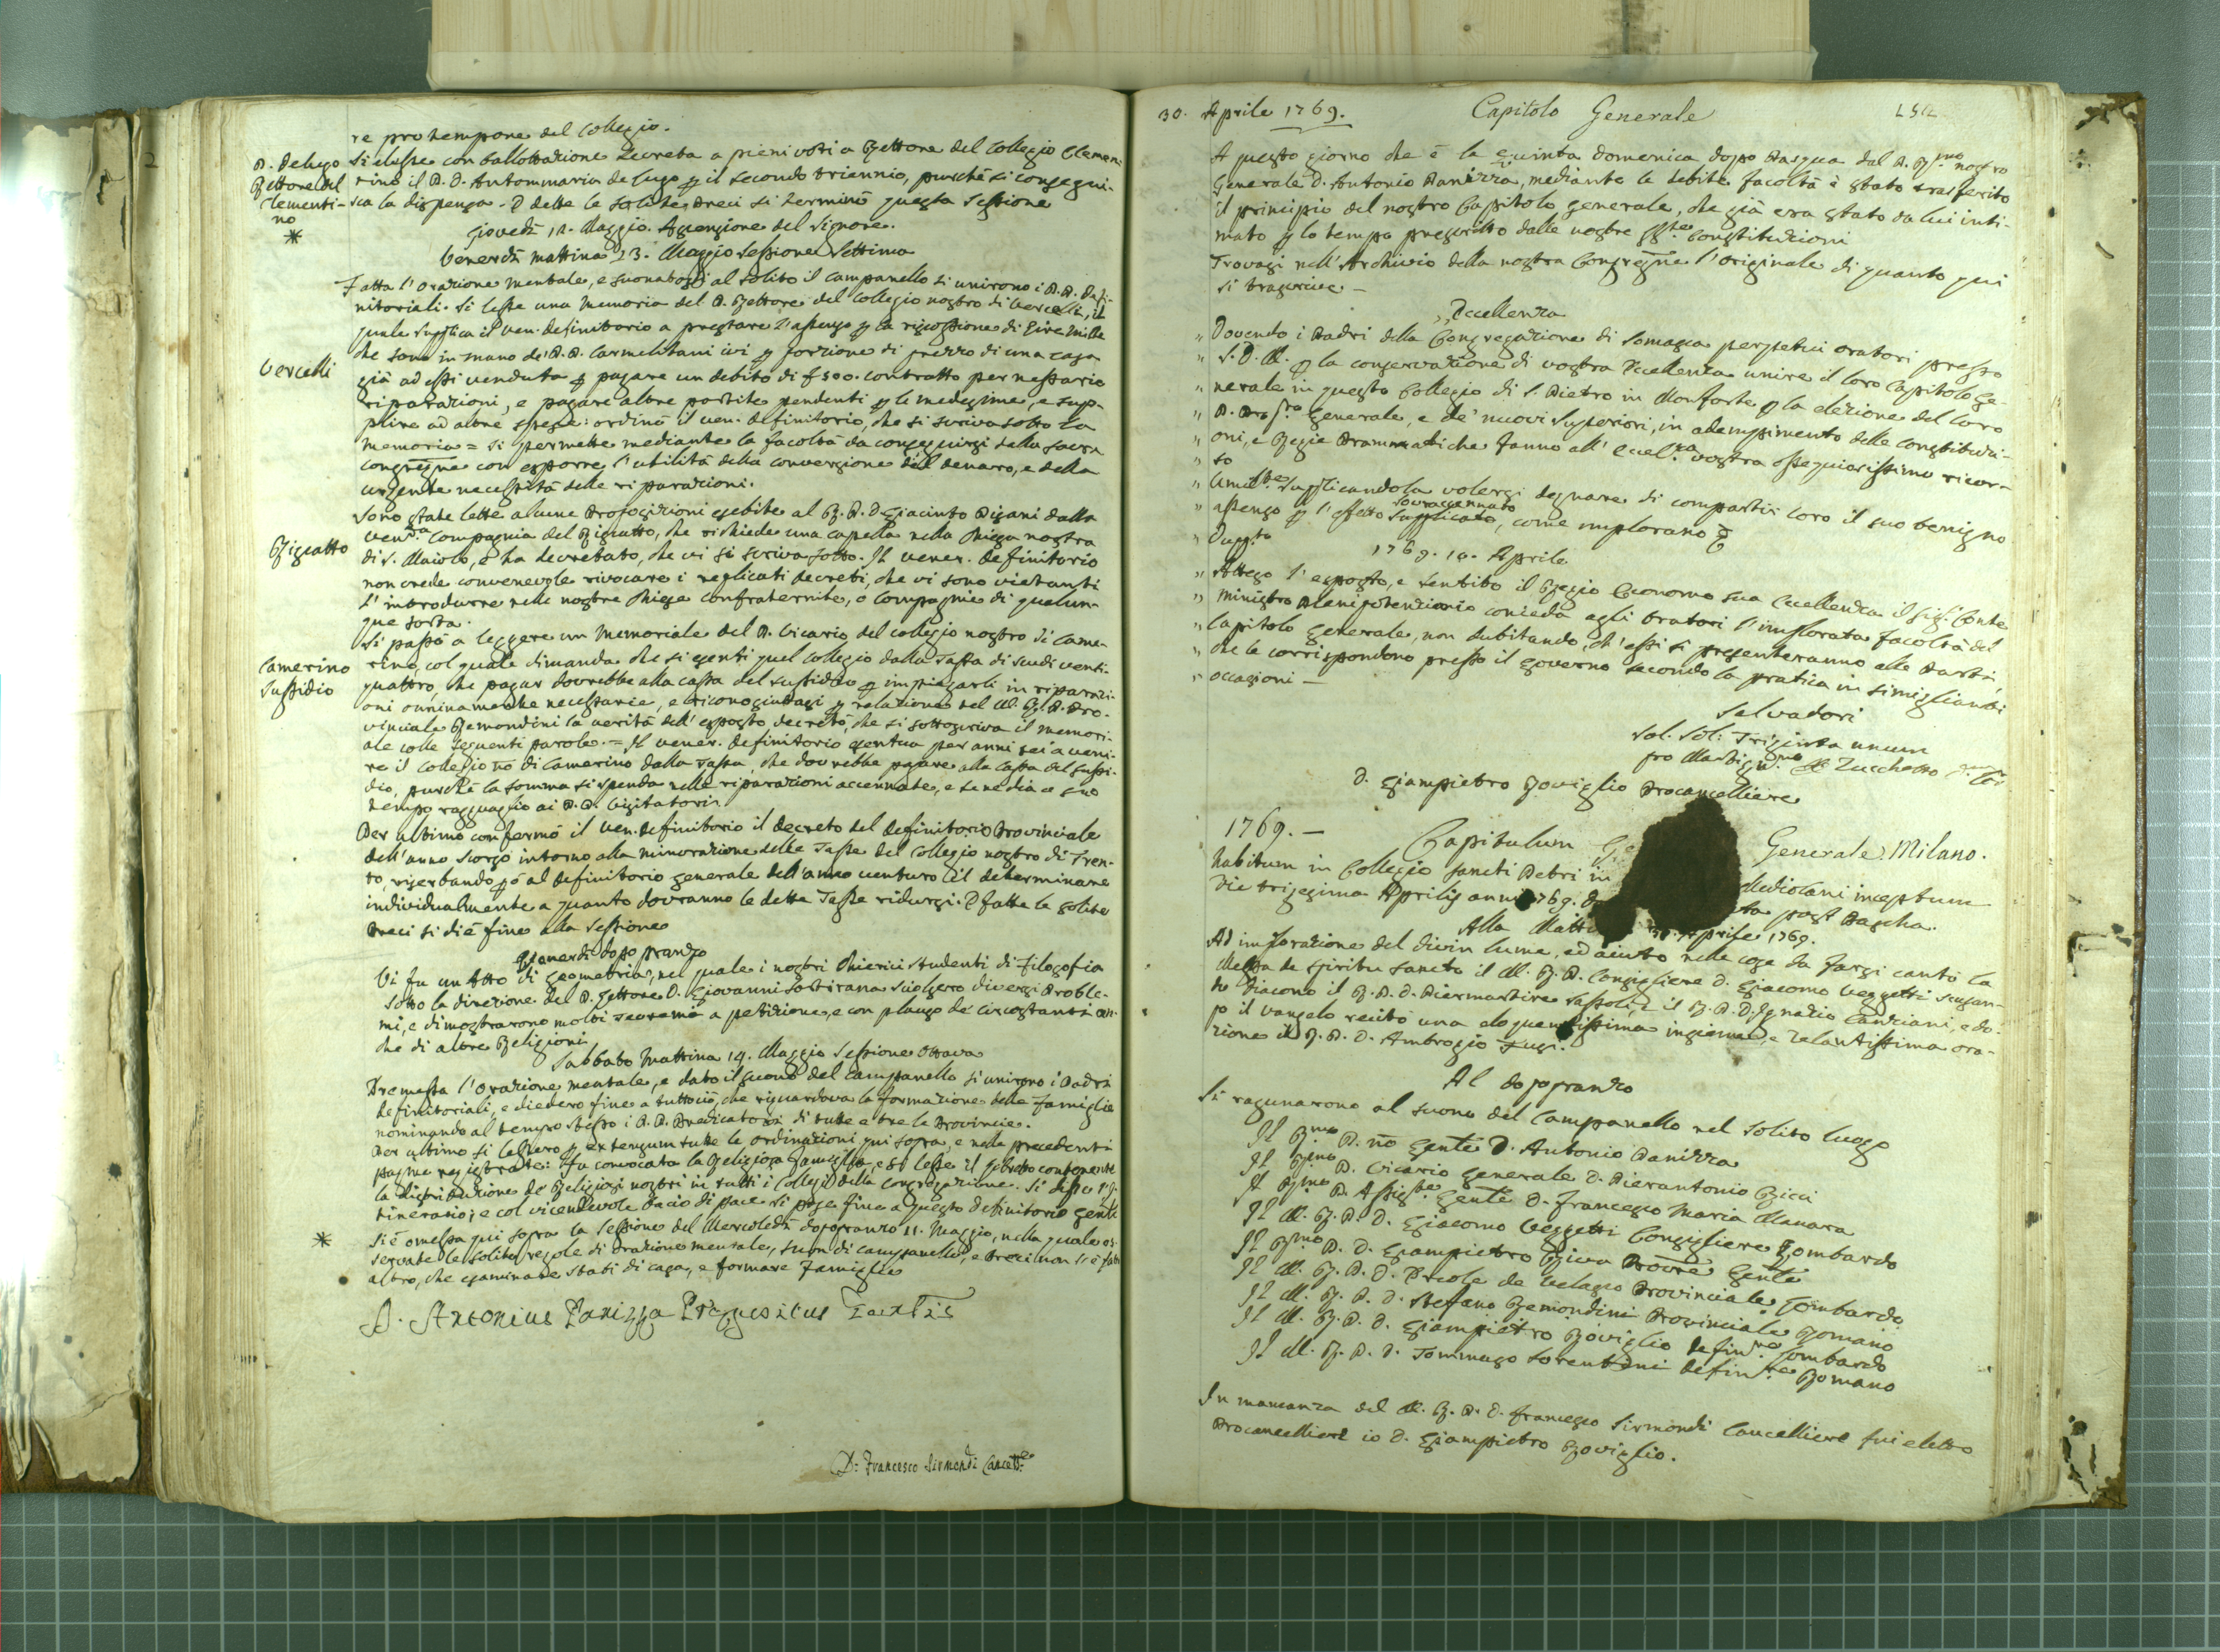 re pro tempore del Collegio.
P. Delugo
Rettore del
Clementi-
no
*
Si elesse con ballottazione secreta a pieni voti a Rettore del Collegio Clemen-
tino il P. D. Antommaria de Lugo p il secondo triennio, purchè si consegui-
sca la dispensa. E dette le solite preci si terminò questa sessione
Giovedì 12. Maggio. Ascensione del Signore.
Venerdì mattina 13. Maggio Sessione Settima
Fatta l'orazione mentale, e suonatosi al solito il campanello si unirono i P.P. Defi-
nitoriali. Si lesse una memoria del P. Rettore del Collegio nostro di Vercelli, il
quale supplica il ven. definitorio a prestare l'assenso p la riscossione di Lire mille
Vercelli
che sono in mano de' P.P. Carmelitani ivi p porzione di prezzo di una casa
già ad essi venduta p pagare un debito di £ 500. contratto per nessarie
riparazioni, e pagare altre partite pendenti p le medesime, e sup-
plire ad altre spese: ordinò il ven. definitorio, che si scriva sotto la
memoria = si permette mediante la facoltà da conseguirsi dalla sacra
congregne con esporre l'utilità della conversione del denaro, e della
urgente necessità delle riparazioni.
Rigiatto
Sono state lette alcune proposizioni esibite al R. P. D. Giacinto Pisani dalla
venda Compagnia del Rigiatto, che richiede una capella nella chiesa nostra
di S. Maiolo, e ha decretato, che vi si scriva sotto. Il vener. definitorio
non crede convenevole rivocare i replicati decreti, che vi sono vietanti
l'introdurre nelle nostre chiese confraternite, o compagnie di qualun-
que sorta.
Camerino
Sussidio
Si passò a leggere un memoriale del P. Vicario del collegio nostro di Came-
rino, col quale dimanda che si esenti quel collegio dalla tassa di scudi venti-
quattro, che pagar dovrebbe alla cassa del sussidio p impiegarli in riparazi-
oni onninamente necessarie, e riconosciutasi p relazione del M. R. P. Pro-
vinciale Remondini la verità dell'esposto decretò, che si sottoscriva il memori-
ale colle seguenti parole. = Il vener. definitorio esentua per anni sei a veni-
re il collegio no di Camerino dalla tassa, che dovrebbe pagare alla cassa del sussi-
dio, purchè la somma si spenda nelle riparazioni accennate, e se ne dia a suo
tempo ragguaglio ai P.P. Visitatori.
Per ultimo confermò il ven. definitorio il decreto del definitorio Provinciale
dell'anno scorso intorno alla minorazione delle Tasse del Collegio nostro di Tren-
to, riserbando pò al definitorio generale dell'anno venturo il determinare
individualmente a quanto dovranno le dette Tasse ridursi. E fatte le solite
preci si diè fine alla sessione
Venerdì dopo pranzo
Vi fu un Atto di geometria, nel quale i nostri chierici studenti di filosofia
sotto la direzione del P. Lettore D. Giovanni Sottirana sciolsero diversi proble-
mi, e dimostrarono molti teoremi a petizione, e con plauso de' circostanti an-
che di altre Religioni.
Sabbato mattina 14. Maggio Sessione Ottava
Premessa l'orazione mentale, e dato il suono del campanello si unirono i Padri
definitoriali, e diedero fine a tuttociò, che riguardava la formazione delle famiglie
nominando al tempo stesso i P.P. Predicatori di tutte e tre le Provincie.
Per ultimo si lessero p extensum tutte le ordinazioni qui sopra, e nelle precedenti
pagine registrate: fu convocata la Religiosa famiglia, e si lesse il libretto contenente
la distribuzione de' Religiosi nostri in tutti i Collegi della Congregazione. Si disse l'I-
tinerario; e col vicendevole bacio di pace si pose fine a questo definitorio genle
*
Si è omessa qui sopra la sessione del Mercoledì dopopranzo 11. Maggio, nella quale os-
servate le solite regole di orazione mentale, suon di campanello, e preci non si è fatto
altro, che esaminare stati di casa, e formare famiglie
D. Antonius Panizza Prepositus Gentis
D: Francesco Sirmondi Cancelle
30. Aprile 1769. Capitolo Generale
A questo giorno che è la quinta domenica dopo Pasqua dal P. Rmo nostro
Generale D. Antonio Panizza, mediante le debite facoltà è stato trasferito
il principio del nostro Capitolo generale, che già era stato da lui inti-
mato p lo tempo prescritto dalle nostre Constituzioni
Trovasi nell'Archivio della nostra Congregne l'originale di quanto qui
si trascrive —
„ Eccellenza
„ Dovendo i Padri della Congregazione di Somasca perpetui oratori presso
„ S. D. M. p la conservazione di vostra Eccellenza unire il loro Capitolo Ge-
„ nerale in questo Collegio di S. Pietro in Monforte p la elezione del loro
„ P. Generale, e de' nuovi superiori, in adempimento delle constituzi-
„ oni, e Regie Prammatiche fanno all'Eccelza vostra ossequiosissimo ricor-
„ so
„ Umilte supplicandola volersi degnare di compartir loro il suo benigno
„ assenso p l'effetto sovraccennato supplicato, come implorano &
„ 1769. 10. Aprile
„ Atteso l'esposto, e sentito il Regio Economo sua Eccellenza il sigr Conte
„ Ministro Plenipotenziario concede agli oratori l'implorata facoltà del
„ Capitolo generale, non dubitando, ch'essi si presenteranno alle parti,
„ che le corrispondono presso il governo secondo la pratica in simiglianti
„ occasioni —
Salvadori
Sol. Sol: Triginta unum
pro Zucchetto
D. Giampietro Roviglio Procancelliere
1769. — Capitulum Ge Generale Milano.
habitum in Collegio Sancti Petri in Mediolani inceptum
die trigesima Aprilis anni 1769. post Pascha.
Alla Matti 30. Aprile 1769.
Ad implorazione del divin lume, ed aiuto nelle cose da farsi cantò la
Messa de Spiritu Sancto il M. R. P. Consigliere D. Giacomo Veggetti
diacono il R. P. D. Piermartire Rassoli, e il R. P. D. Ignazio Canziani, e do-
po il vangelo recitò una eloquentissima insieme, e zelantissima ora-
zione il R. P. D. Ambrogio Fugi.
Al dopopranzo
Si ragunarono al suono del Campanello nel solito luogo
Il Rmo P. no Genle D. Antonio Panizza
Il Rmo P. Vicario Generale D. Pierantonio Ricci
Il Rmo P. Assiste Genle D. Francesco Maria Manara
Il M. R. P. D. Giacomo Veggetti Consigliere Lombardo
Il Rmo P. D. Giampietro Riva Genle
Il M. R. P. D. Ercole de Velasco Provinciale Lombardo
Il M. R. P. D. Stefano Remondini Provinciale Romano
Il M. R. P. D. Giampietro Roviglio definre Lombardo
Il M. R. P. D. Tommaso Sorentini definre Romano
In mancanza del M. R. P. D. Francesco Sirmondi Cancelliere fui eletto
Procancelliere io D. Giampietro Roviglio.